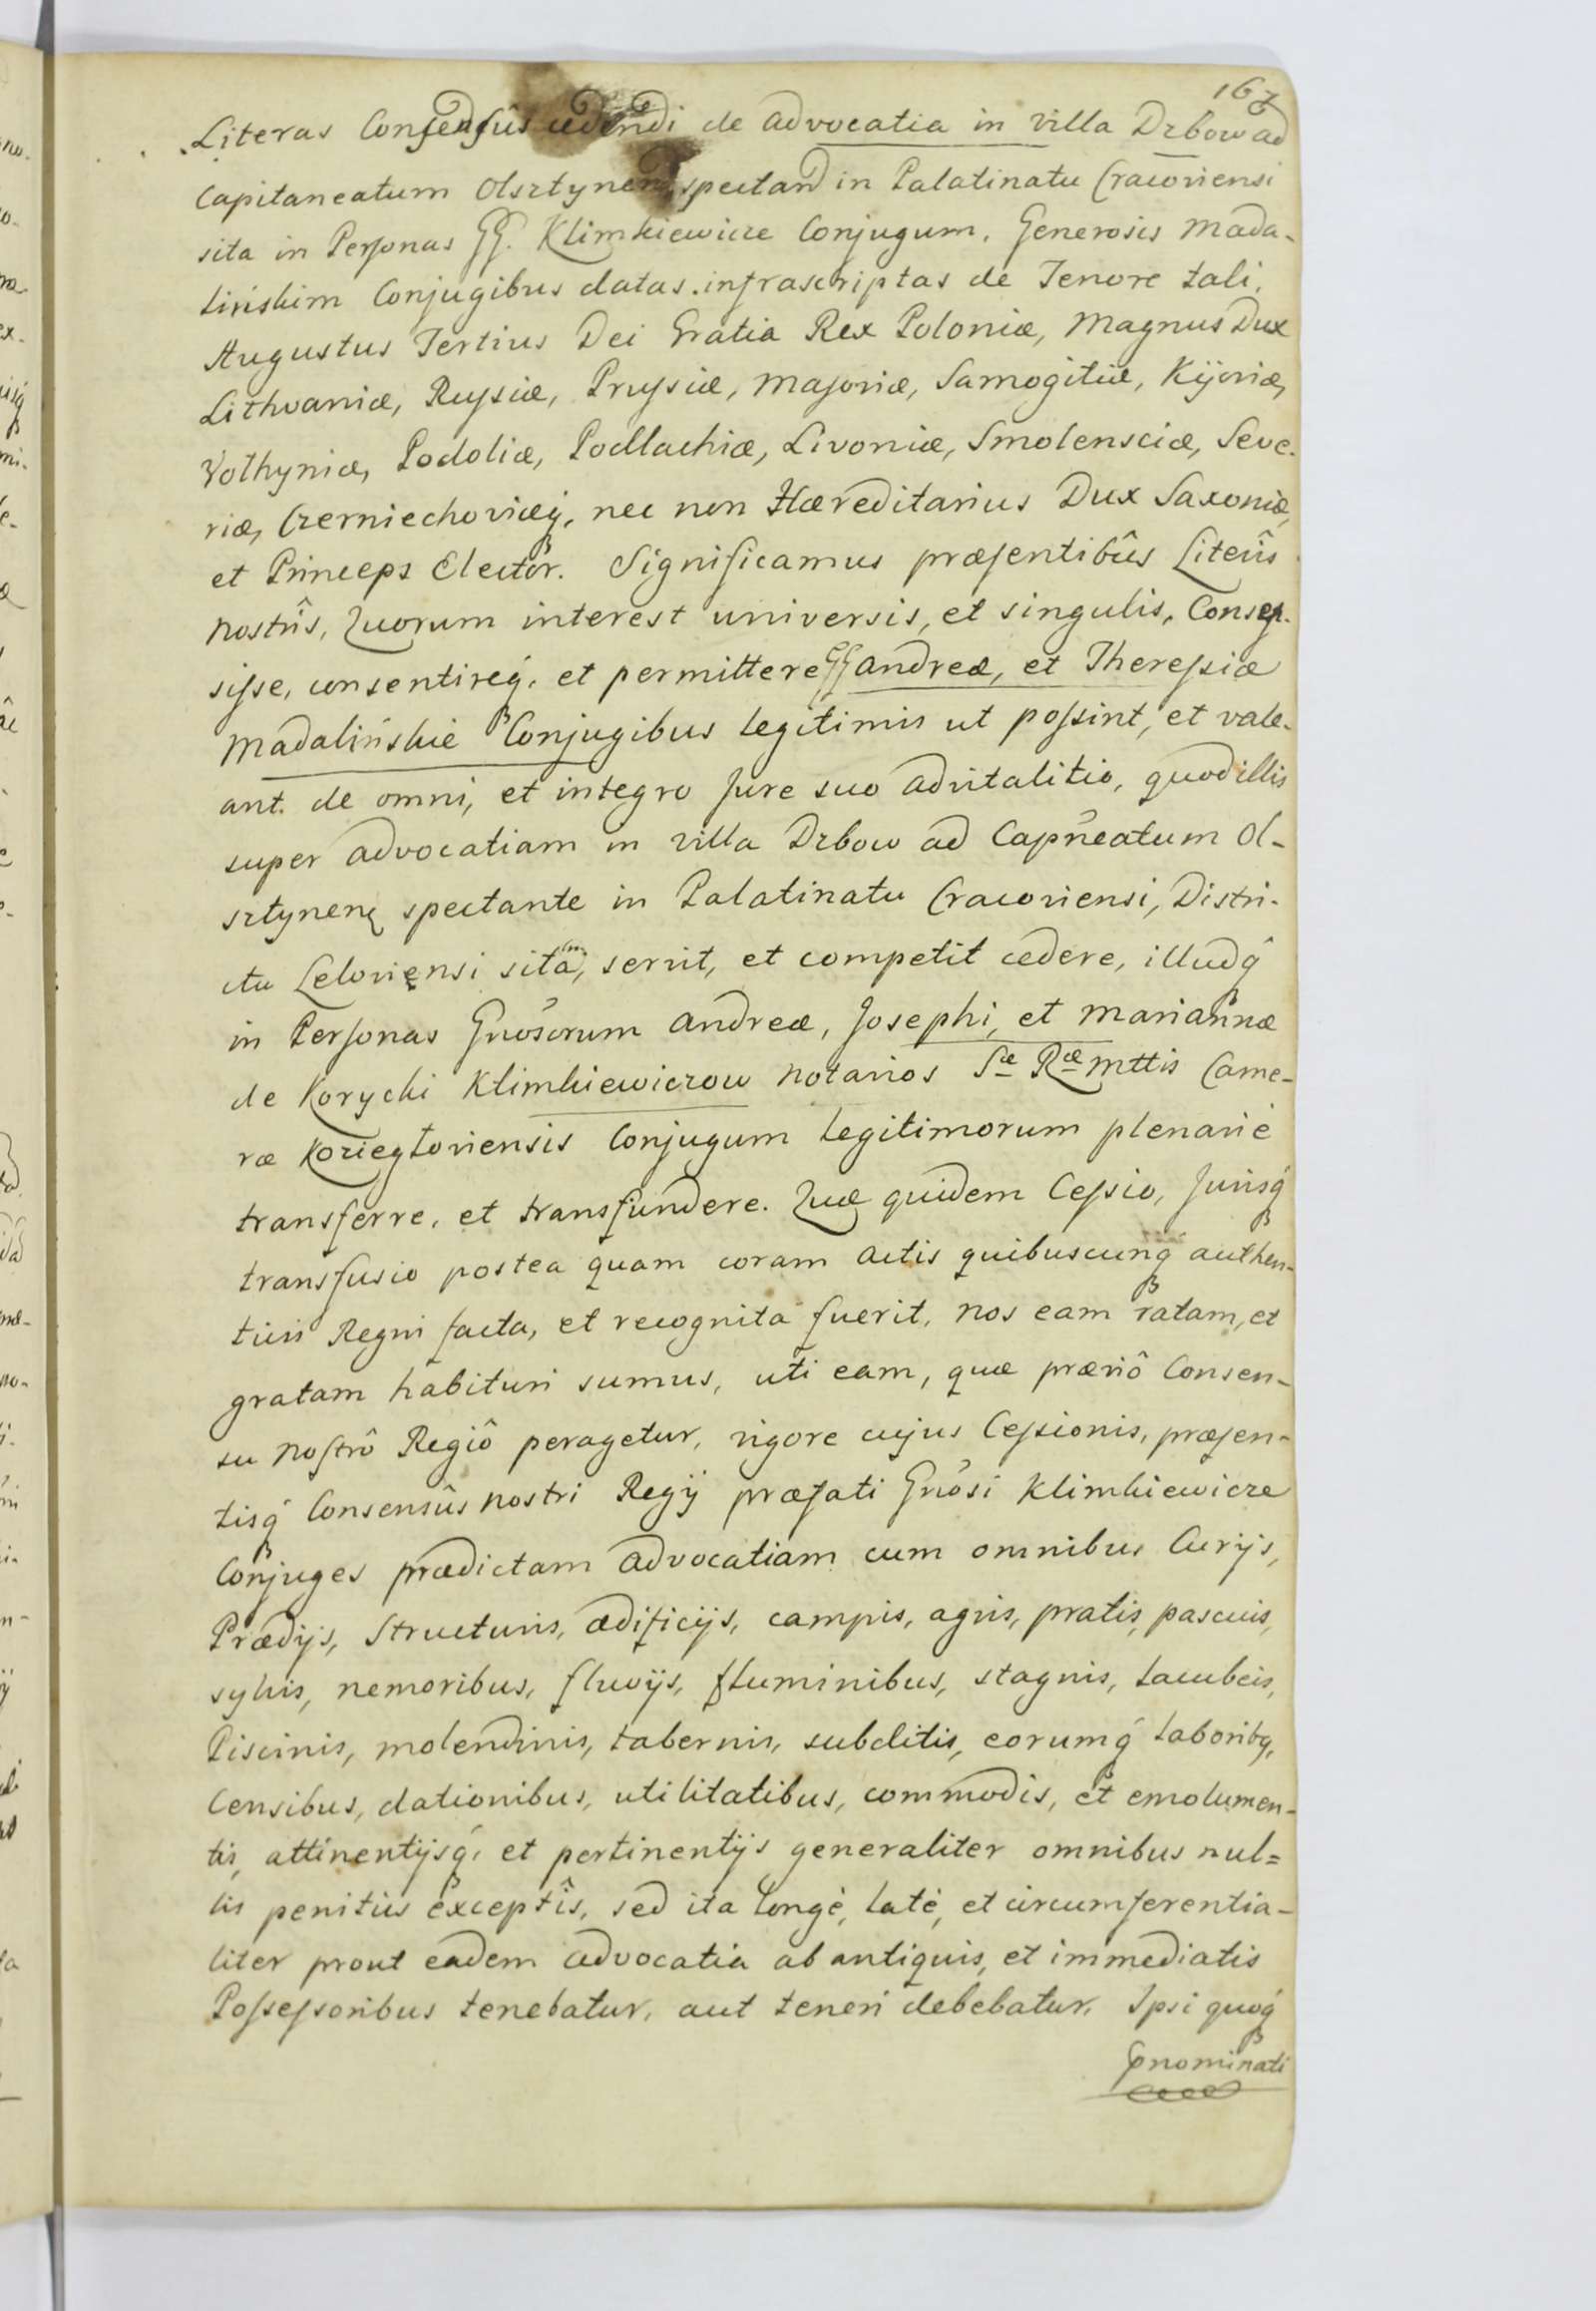 167
Literas Consensûs cedendi de advocatia in villa Dzbow ad
Capitaneatum Olsztynen spectan in Palatinatu Cracoviensi
sita in Personas GG. Klimkiewicze Conjugum, Generosis Mada-
lińskim Conjugibus datas infrascriptas de Tenore tali.
Augustus Tertius Dei Gratia Rex Poloniæ, Magnus Dux
Lithvaniæ, Russiæ, Prussiæ, Masoviæ, Samogitiæ, Kijoviæ,
Volhyniæ, Podoliæ, Podlachiæ, Livoniæ, Smolensciæ, Seve-
riæ, Czerniechoviæq́, nec non Hæreditarius Dux Saxoniæ,
et Princeps Elector. Significamus præsentibûs Literîs
nostrîs, Quorum interest universis, et singulis, Consen-
sisse, consentireq́, et permittere GG Andreæ, et Theressiæ
Madalińskie Conjugibus legitimis ut possint, et vale-
ant. de omni, et integro Jure suo advitalitio, quod illis
super advocatiam in villa Dzbow ad Capneatum Ol-
sztynenę spectante in Palatinatu Cracoviensi, Distri-
ctu Leloviensi sitam, servit, et competit cedere, illudq́
in Personas Gnosorum Andreæ, Josephi, et Mariannæ
de Korycki Klimkiewiczow notarios Sæ Ræ Mttis Came-
ræ Koziegłoviensis Conjugum legitimorum plenarié
transferre, et transfundere. Quæ quidem Cessio, Jurisq́
transfusio postea quam coram Actis quibuscunq́ authen-
ticis Regni facta, et recognita fuerit, nos eam ratam, et
gratam habituri sumus, uti eam, quæ præviô Consen-
su nostrô Regiô peragetur, vigore cujus Cessionis, præsen-
tisq́ Consensûs nostri Regÿ præfati Gnosi Klimkiewicze
Conjuges prædictam advocatiam cum omnibus Curÿs,
Prædÿs, Structuris, ædificÿs, campis, agris, pratis, pascuis,
sylvis, nemoribus, fluvÿs, fluminibus, stagnis, lacubcis,
Piscinis, molendinis, tabernis, subditis, eorumq́ laboribq,
Censibus, dationibus, utilitatibus, commodis, et emolumen-
tis, attinentÿsq́, et pertinentÿs generaliter omnibus nul=
lis penitùs exceptîs, sed ita longè, latè, et circumferentia-
liter prout eadem advocatia ab antiquis, et immediatis
Possessoribus tenebatur, aut teneri debebatur. Ipsi quoq́
Pnominati